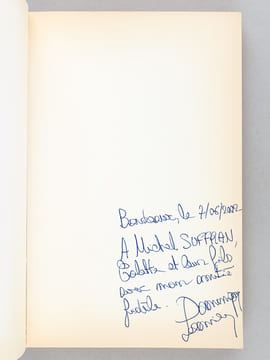 Bordeaux, le 7/06/2002
A Michel SUFFRAN,
Colette et leur fils
avec mon amitié
fidèle. Dominique